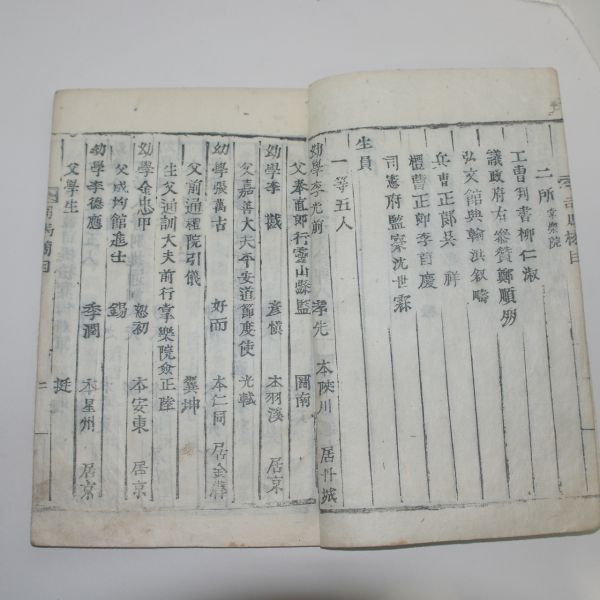 二所 掌樂院
工曹判書柳仁淑
議政府右參贊鄭順朋
弘文館典翰洪敍疇
兵曹正郞吳 祥
禮曹正郞李首慶
司憲府監察沈世霖
生員
一等五人
幼學李光前 孝先 本陜川 居丹城
父奉直郞行靈山縣監 圖南
幼學李 戡 彦愼 本羽溪 居京
父嘉善大夫平安道節度使 光軾
幼學張萬古 好而 本仁同 居金
父前通禮院引儀 翼坤
生父通訓大夫前行掌樂院僉正 陸
幼學金忠甲 恕初 本安東 居京
父成均館進士 錫
幼學李德應 季潤 本星州 居京
父學生 挺
司馬榜目
二